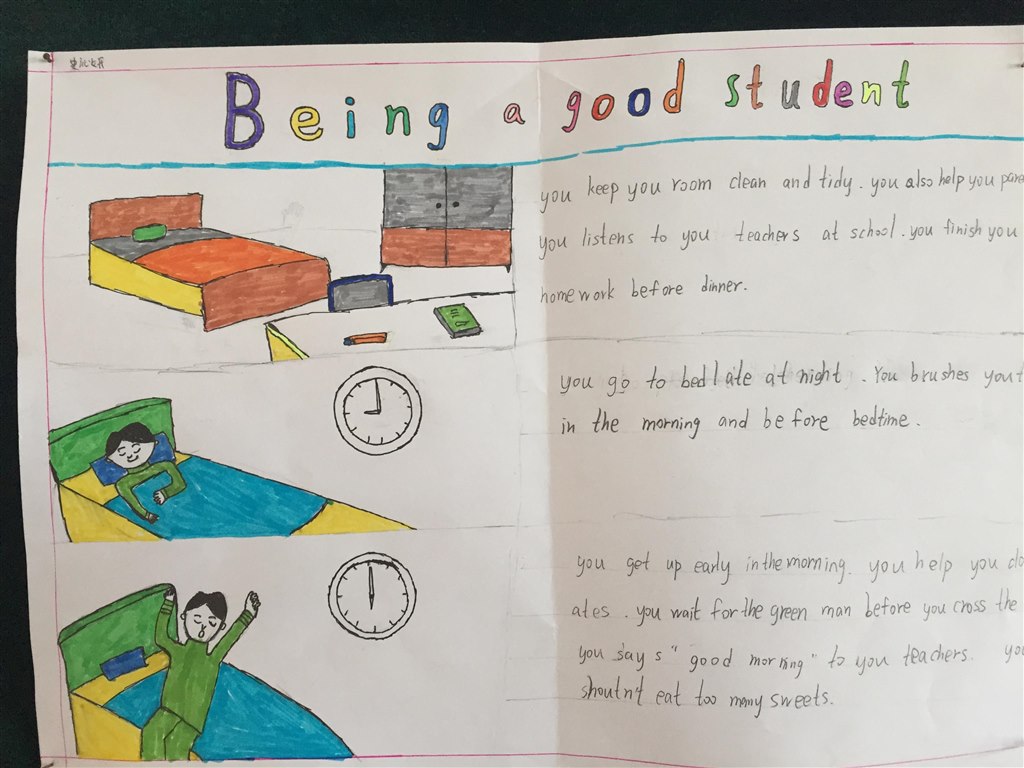 Being a good student
you keep you room clean and tidy. you also help you pare
you listens to you teachers at school. you finish you
homework before dinner.
you go to bed late at night. You brushes yout
in the morning and before bedtime.
you get up early in the morning. you help you clo
ates. you wait for the green man before you cross the
you say s "good morning" to you teachers. yo
shoutnt eat too many sweets.